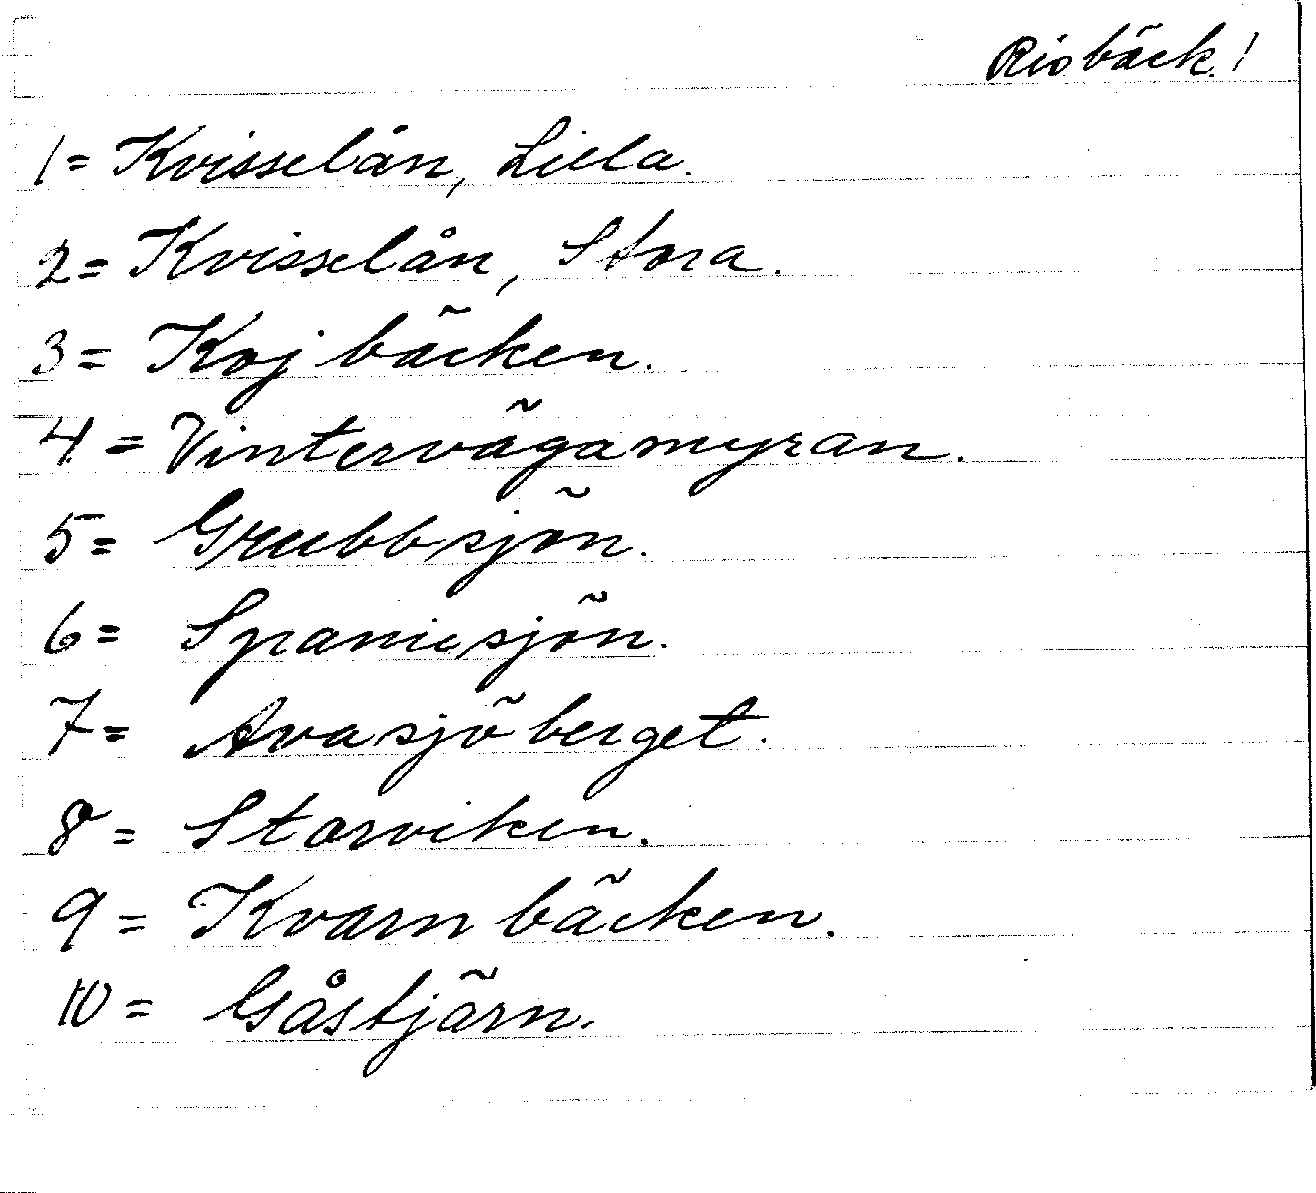 Risbäck!
1= Kvisselån, Lilla.
2= Kvisselån, Stora.
3= Kojbäcken.
4= Vintervägamyran.
5= Grubbsjön.
6= sjön.
7= Avasjöberget.
8= Storviken.
9= Kvarnbäcken.
10= Gåstjärn.